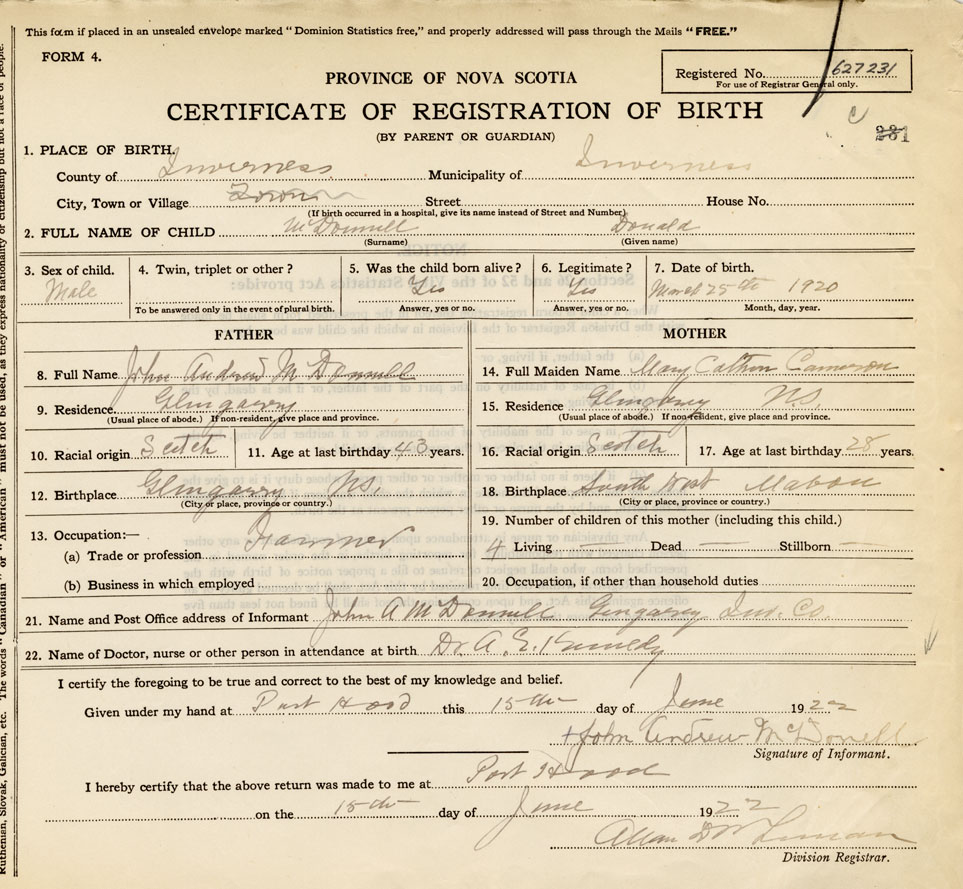 This form if placed in an unsealed envelope marked "Dominion Statistics free," and properly addressed will pass through the Mails "FREE."
FORM 4.
Registered No. 627231
For use of Registrar General only.
PROVINCE OF NOVA SCOTIA
CERTIFICATE OF REGISTRATION OF BIRTH
(BY PARENT OR GUARDIAN)
281
1. PLACE OF BIRTH.
County of Inverness Municipality of Inverness
City, Town or Village Street House No.
(If birth occurred in a hospital, give its name instead of Street and Number)
2. FULL NAME OF CHILD McDonnell Donald
(Surname) (Given name)
3. Sex of child. 4. Twin, triplet or other? 5. Was the child born alive? 6. Legitimate? 7. Date of birth.
Male Yes Yes March 25th 1920
To be answered only in the event of plural birth. Answer, yes or no. Answer, yes or no. Month, day, year.
FATHER
8. Full Name John Andrew McDonnell
9. Residence Glengarry
(Usual place of abode.) If non-resident, give place and province.
10. Racial origin Scotch 11. Age at last birthday 43 years.
12. Birthplace Glengarry N.S.
(City or place, province or country.)
13. Occupation:—
(a) Trade or profession Farmer
(b) Business in which employed
MOTHER
14. Full Maiden Name Mary Cameron
15. Residence Glengarry N.S.
(Usual place of abode.) If non-resident, give place and province.
16. Racial origin Scotch 17. Age at last birthday 28 years.
18. Birthplace South West Mabou
(City or place, province or country.)
19. Number of children of this mother (including this child.)
4 Living — Dead — Stillborn —
20. Occupation, if other than household duties
21. Name and Post Office address of Informant John A McDonnell Glengarry Inv. Co.
22. Name of Doctor, nurse or other person in attendance at birth Dr A. E. Kennedy
I certify the foregoing to be true and correct to the best of my knowledge and belief.
Given under my hand at Port Hood this 15th day of June 1922
John Andrew McDonell
Signature of Informant.
I hereby certify that the above return was made to me at Port Hood
on the 15th day of June 1922
Allan
Division Registrar.
Ruthenian, Slovak, Galician, etc. The words "Canadian" or "American" must not be used, as they express nationality or citizenship but not a race of people.